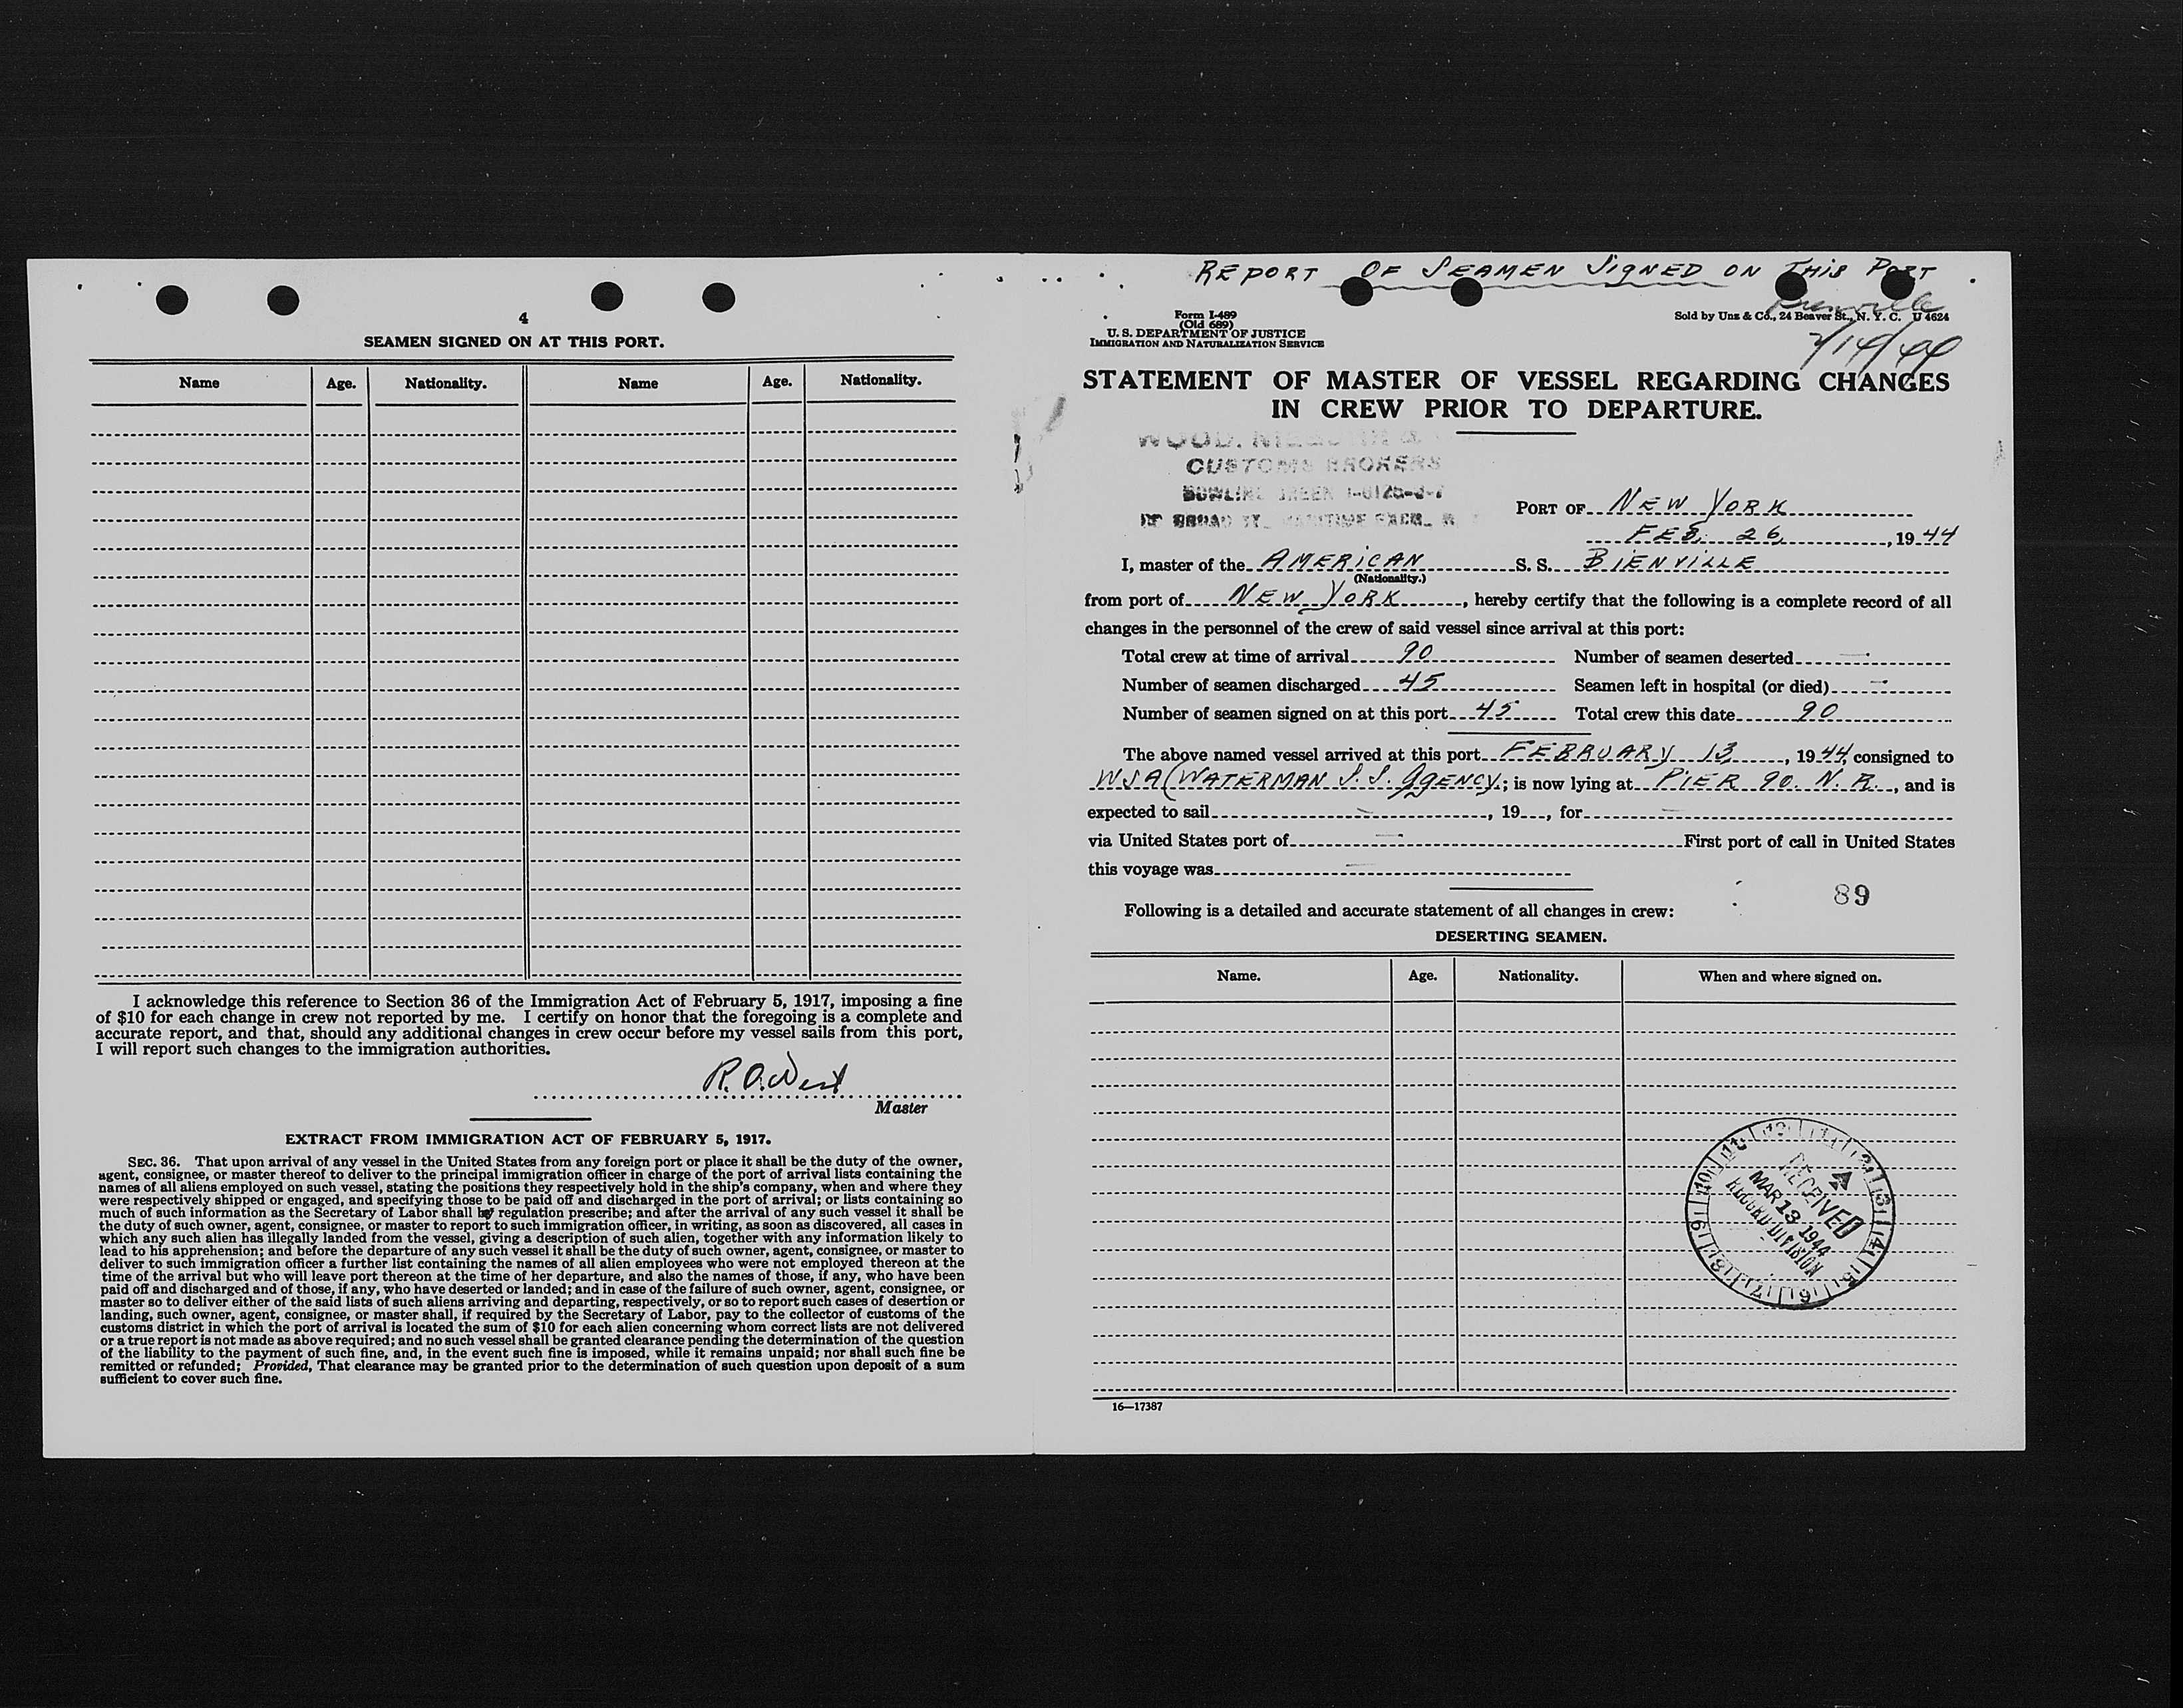 4
SEAMEN SIGNED ON AT THIS PORT.
Name Age. Nationality. Name Age. Nationality.
I acknowledge this reference to Section 36 of the Immigration Act of February 5, 1917, imposing a fine
of $10 for each change in crew not reported by me. I certify on honor that the foregoing is a complete and
accurate report, and that, should any additional changes in crew occur before my vessel sails from this port,
I will report such changes to the immigration authorities.
R. O. West
Master
EXTRACT FROM IMMIGRATION ACT OF FEBRUARY 5, 1917.
SEC. 36. That upon arrival of any vessel in the United States from any foreign port or place it shall be the duty of the owner,
agent, consignee, or master thereof to deliver to the principal immigration officer in charge of the port of arrival lists containing the
names of all aliens employed on such vessel, stating the positions they respectively hold in the ship's company, when and where they
were respectively shipped or engaged, and specifying those to be paid off and discharged in the port of arrival; or lists containing so
much of such information as the Secretary of Labor shall by regulation prescribe; and after the arrival of any such vessel it shall be
the duty of such owner, agent, consignee, or master to report to such immigration officer, in writing, as soon as discovered, all cases in
which any such alien has illegally landed from the vessel, giving a description of such alien, together with any information likely to
lead to his apprehension; and before the departure of any such vessel it shall be the duty of such owner, agent, consignee, or master to
deliver to such immigration officer a further list containing the names of all alien employees who were not employed thereon at the
time of the arrival but who will leave port thereon at the time of her departure, and also the names of those, if any, who have been
paid off and discharged and of those, if any, who have deserted or landed; and in case of the failure of such owner, agent, consignee, or
master so to deliver either of the said lists of such aliens arriving and departing, respectively, or so to report such cases of desertion or
landing, such owner, agent, consignee, or master shall, if required by the Secretary of Labor, pay to the collector of customs of the
customs district in which the port of arrival is located the sum of $10 for each alien concerning whom correct lists are not delivered
or a true report is not made as above required; and no such vessel shall be granted clearance pending the determination of the question
of the liability to the payment of such fine, and, in the event such fine is imposed, while it remains unpaid; nor shall such fine be
remitted or refunded; Provided, That clearance may be granted prior to the determination of such question upon deposit of a sum
sufficient to cover such fine.
REPORT OF SEAMEN SIGNED ON THIS PORT
Bienville
2/14/44
Form I-489
(Old 689)
U. S. DEPARTMENT OF JUSTICE
IMMIGRATION AND NATURALIZATION SERVICE
Sold by Unz & Co., 24 Beaver St., N. Y. C. U 4624
STATEMENT OF MASTER OF VESSEL REGARDING CHANGES
IN CREW PRIOR TO DEPARTURE.
WOOD,
CUSTOMS BROKERS
BOWLING GREEN
BROAD ST. MARITIME EXCH.
PORT OF NEW YORK
FEB. 26, 1944
I, master of the AMERICAN S. S. BIENVILLE
(Nationality.)
from port of NEW YORK, hereby certify that the following is a complete record of all
changes in the personnel of the crew of said vessel since arrival at this port:
Total crew at time of arrival 90 Number of seamen deserted —
Number of seamen discharged 45 Seamen left in hospital (or died) —
Number of seamen signed on at this port 45 Total crew this date 90
The above named vessel arrived at this port FEBRUARY 13, 1944, consigned to
WSA (WATERMAN S.S. AGENCY; is now lying at PIER 90. N. R., and is
expected to sail —, 19 , for —
via United States port of — First port of call in United States
this voyage was —
89
Following is a detailed and accurate statement of all changes in crew:
DESERTING SEAMEN.
Name. Age. Nationality. When and where signed on.
RECEIVED
MAR 13 1944
RECORD DIVISION
16—17387